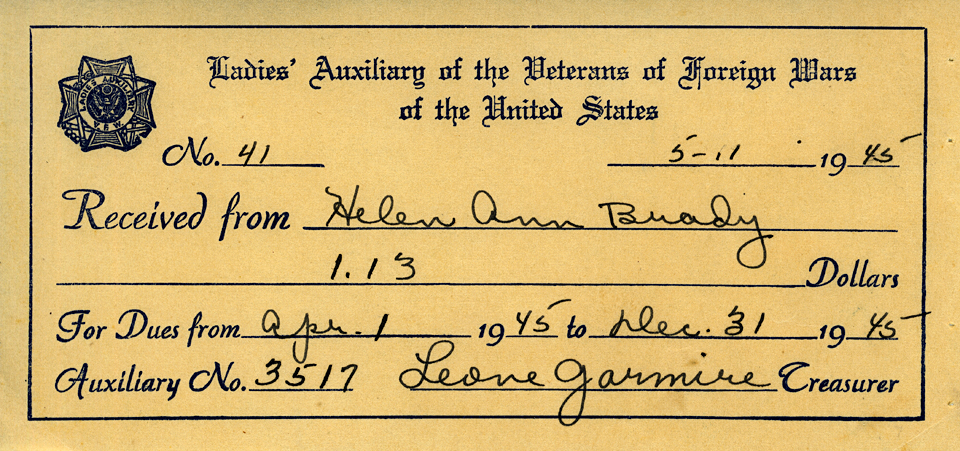 Ladies' Auxiliary of the Veterans of Foreign Wars
of the United States
LADIES AUXILIARY
V.F.W.
No. 41 5-11 1945
Received from Helen Ann Brady
1.13 Dollars
For Dues from Apr. 1 1945 to Dec. 31 1945
Auxiliary No. 3517 Leone Garmire Treasurer